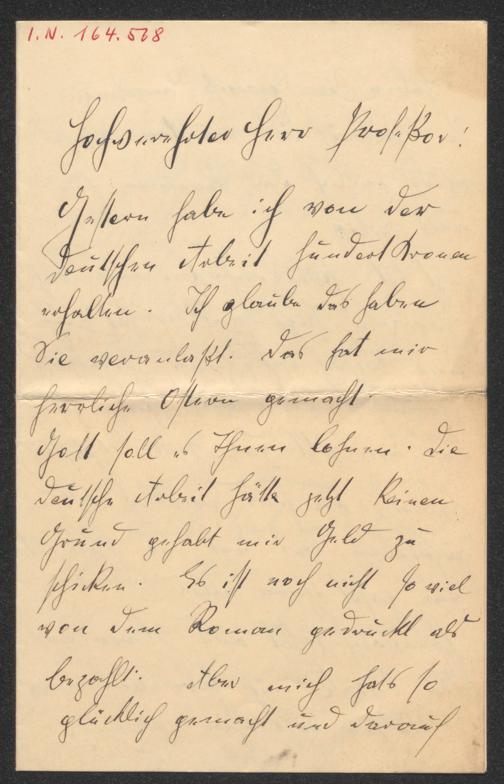 I.N. 164.568
Hochverehrter Herr Professor!
Gestern habe ich von der
Deutschen Arbeit hundert Kronen
erhalten. Ich glaube das haben
Sie veranlaßt. Das hat mir
herrliche Ostern gemacht.
Gott soll es Ihnen lohnen. Die
Deutsche Arbeit hätte jetzt keinen
Grund gehabt mir Geld zu
schicken. Es ist noch nicht so viel
von dem Roman gedruckt als
bezahlt. Aber mich hats so
glücklich gemacht und darauf